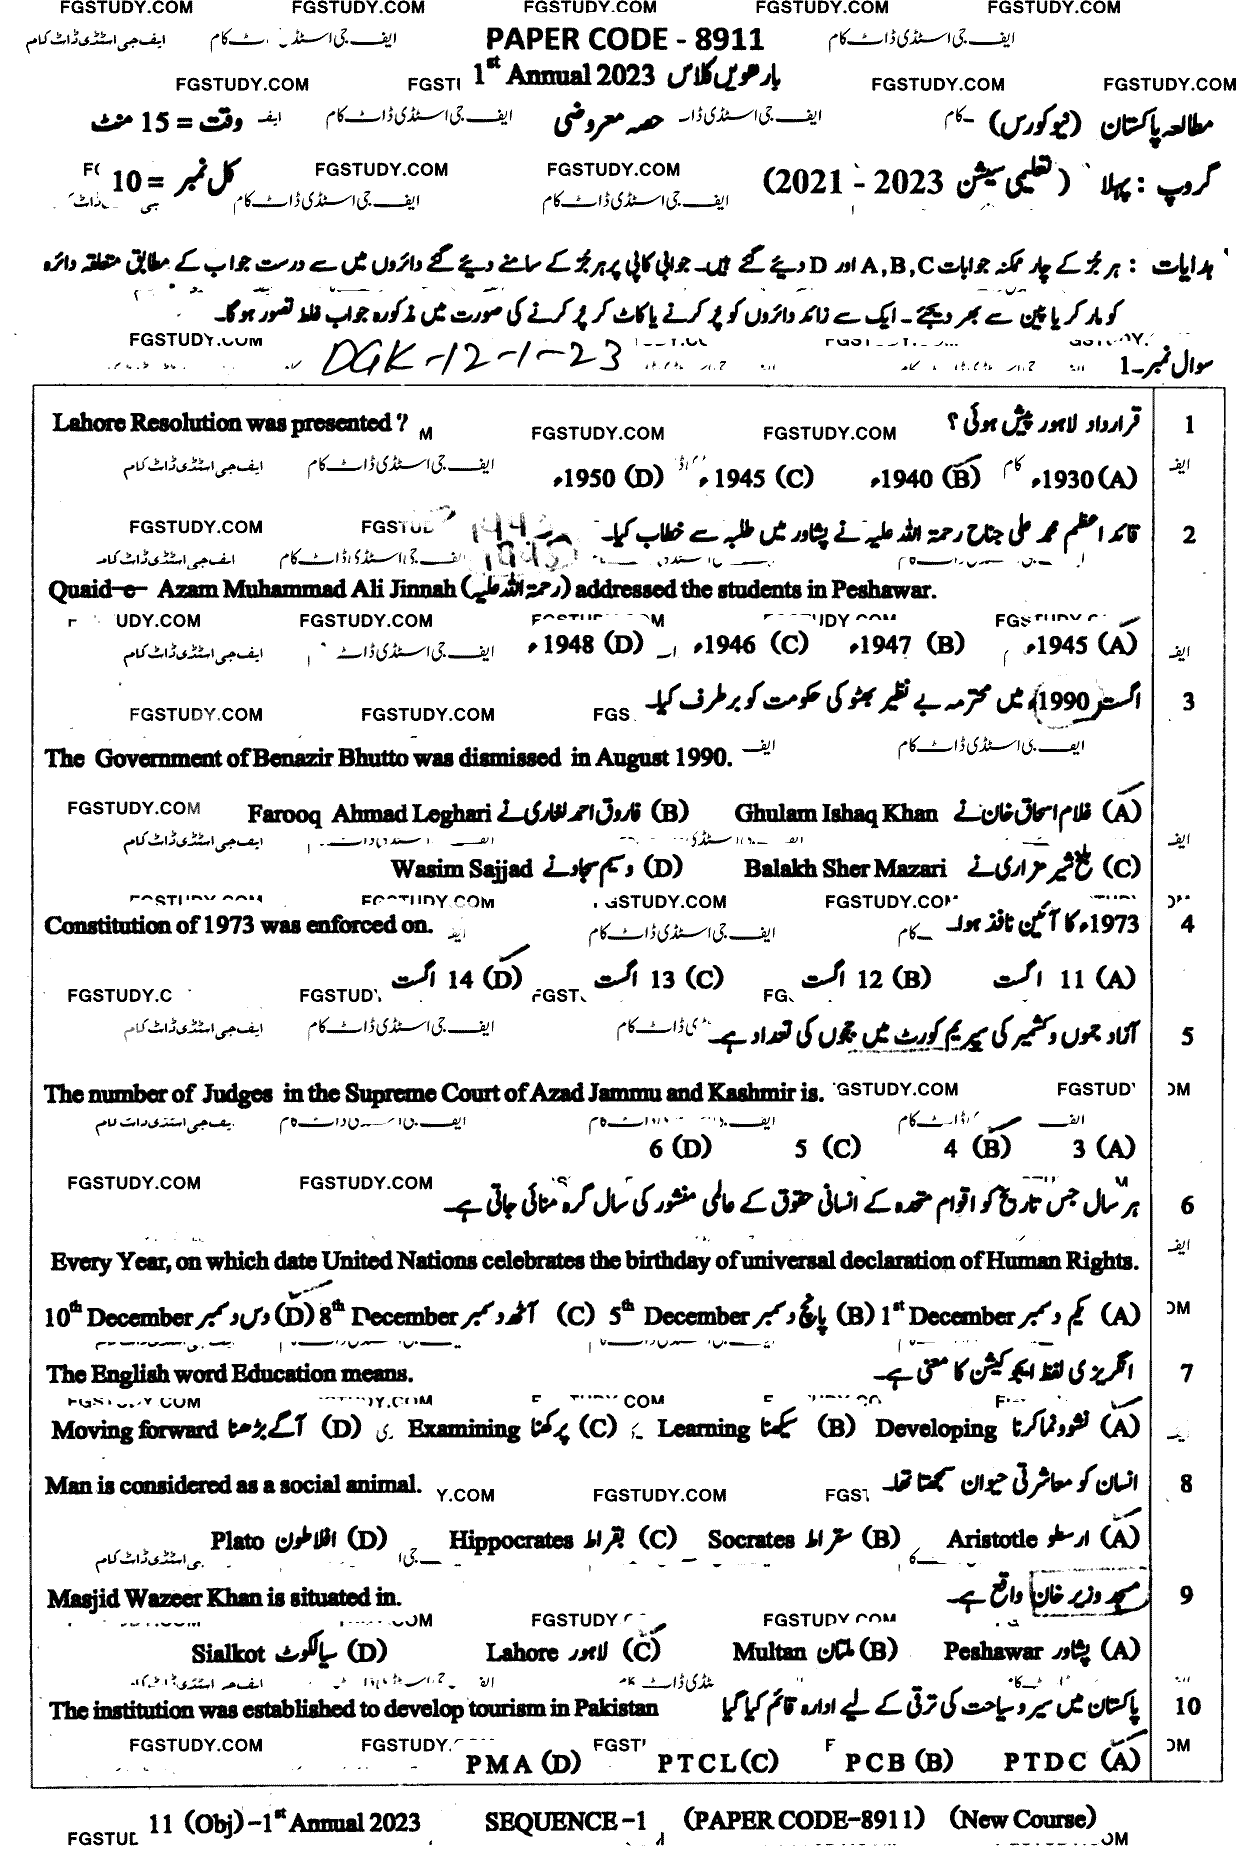 FGSTUDY.COM FGSTUDY.COM FGSTUDY.COM FGSTUDY.COM FGSTUDY.COM
ایف جی اسٹڈی ڈاٹ کام PAPER CODE - 8911 ایف جی اسٹڈی ڈاٹ کام
FGSTUDY.COM 1st Annual 2023 بارھویں کلاس FGSTUDY.COM FGSTUDY.COM
مطالعہ پاکستان (نیو کورس) حصہ معروضی وقت = 15 منٹ
گروپ : پہلا (تعلیمی سیشن 2023 - 2021) کل نمبر = 10
ہدایات : ہر جز کے چار ممکنہ جوابات A,B,C اور D دیئے گئے ہیں۔ جوابی کاپی پر ہر جز کے سامنے دیئے گئے دائروں میں سے درست جواب کے مطابق متعلقہ دائرہ
کو مارکر یا پین سے بھر دیجئے۔ ایک سے زائد دائروں کو پُر کرنے یا کاٹ کر پُر کرنے کی صورت میں مذکورہ جواب غلط تصور ہوگا۔
سوال نمبر 1- DGK-12-1-23
1 قرارداد لاہور پیش ہوئی ؟ Lahore Resolution was presented ?
(A) 1930ء (B) 1940ء (C) 1945ء (D) 1950ء
2 قائد اعظم محمد علی جناح رحمۃ اللہ علیہ نے پشاور میں طلبہ سے خطاب کیا۔
Quaid-e- Azam Muhammad Ali Jinnah (رحمۃ اللہ علیہ) addressed the students in Peshawar.
(A) 1945ء (B) 1947ء (C) 1946ء (D) 1948ء
3 اگست 1990ء میں محترمہ بے نظیر بھٹو کی حکومت کو برطرف کیا۔
The Government of Benazir Bhutto was dismissed in August 1990.
(A) غلام اسحاق خان نے Ghulam Ishaq Khan (B) فاروق احمد لغاری نے Farooq Ahmad Leghari
(C) بلخ شیر مزاری نے Balakh Sher Mazari (D) وسیم سجاد نے Wasim Sajjad
4 1973ء کا آئین نافذ ہوا۔ Constitution of 1973 was enforced on.
(A) 11 اگست (B) 12 اگست (C) 13 اگست (D) 14 اگست
5 آزاد جموں و کشمیر کی سپریم کورٹ میں ججوں کی تعداد ہے۔
The number of Judges in the Supreme Court of Azad Jammu and Kashmir is.
(A) 3 (B) 4 (C) 5 (D) 6
6 ہر سال جس تاریخ کو اقوام متحدہ کے انسانی حقوق کے عالمی منشور کی سال گرہ منائی جاتی ہے۔
Every Year, on which date United Nations celebrates the birthday of universal declaration of Human Rights.
(A) یکم دسمبر 1st December (B) پانچ دسمبر 5th December (C) آٹھ دسمبر 8th December (D) دس دسمبر 10th December
7 انگریزی لفظ ایجوکیشن کا معنی ہے۔ The English word Education means.
(A) نشوونما کرنا Developing (B) سیکھنا Learning (C) پرکھنا Examining (D) آگے بڑھنا Moving forward
8 انسان کو معاشرتی حیوان سمجھتا تھا۔ Man is considered as a social animal.
(A) ارسطو Aristotle (B) سقراط Socrates (C) بقراط Hippocrates (D) افلاطون Plato
9 مسجد وزیر خان واقع ہے۔ Masjid Wazeer Khan is situated in.
(A) پشاور Peshawar (B) ملتان Multan (C) لاہور Lahore (D) سیالکوٹ Sialkot
10 پاکستان میں سیر و سیاحت کی ترقی کے لیے ادارہ قائم کیا گیا The institution was established to develop tourism in Pakistan
(A) PTDC (B) PCB (C) PTCL (D) PMA
11 (Obj)-1st Annual 2023 SEQUENCE -1 (PAPER CODE-8911) (New Course)